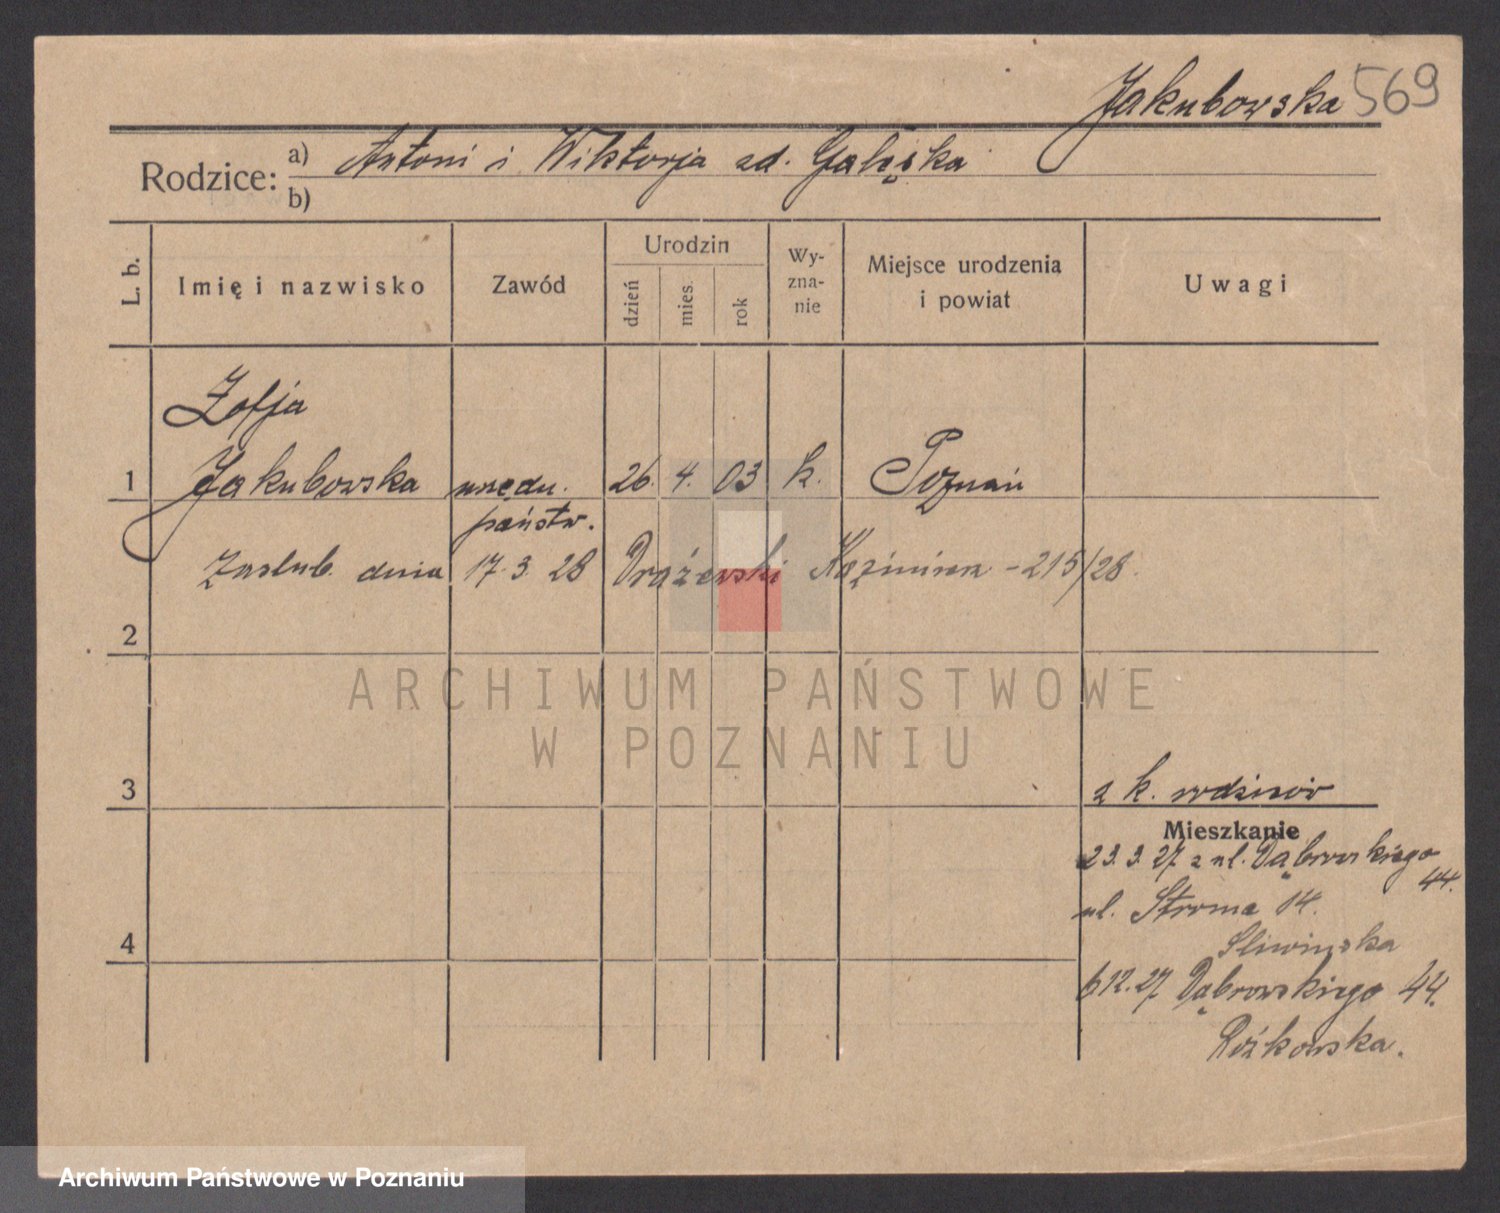 Jakubowska 569
Rodzice: a) Antoni i Wiktorja zd. Gałęska
b)
L. b.
Imię i nazwisko
Zawód
Urodzin
dzień
mies.
rok
Wy-
zna-
nie
Miejsce urodzenia
i powiat
Uwagi
Zofja
1 Jakubowska urzędn. 26. 4. 03 k. Poznań
państw.
Zaślub. dnia 17.3.28 Drążewski Kazimierz - 215/28.
2
ARCHIWUM PAŃSTWOWE
W POZNANIU
3
z k. rodziców
Mieszkanie
23.3.27 z ul. Dąbrowskiego
44.
ul. Stroma 14.
Śliwińska
4
6 12.27 Dąbrowskiego 44.
Różkowska.
Archiwum Państwowe w Poznaniu